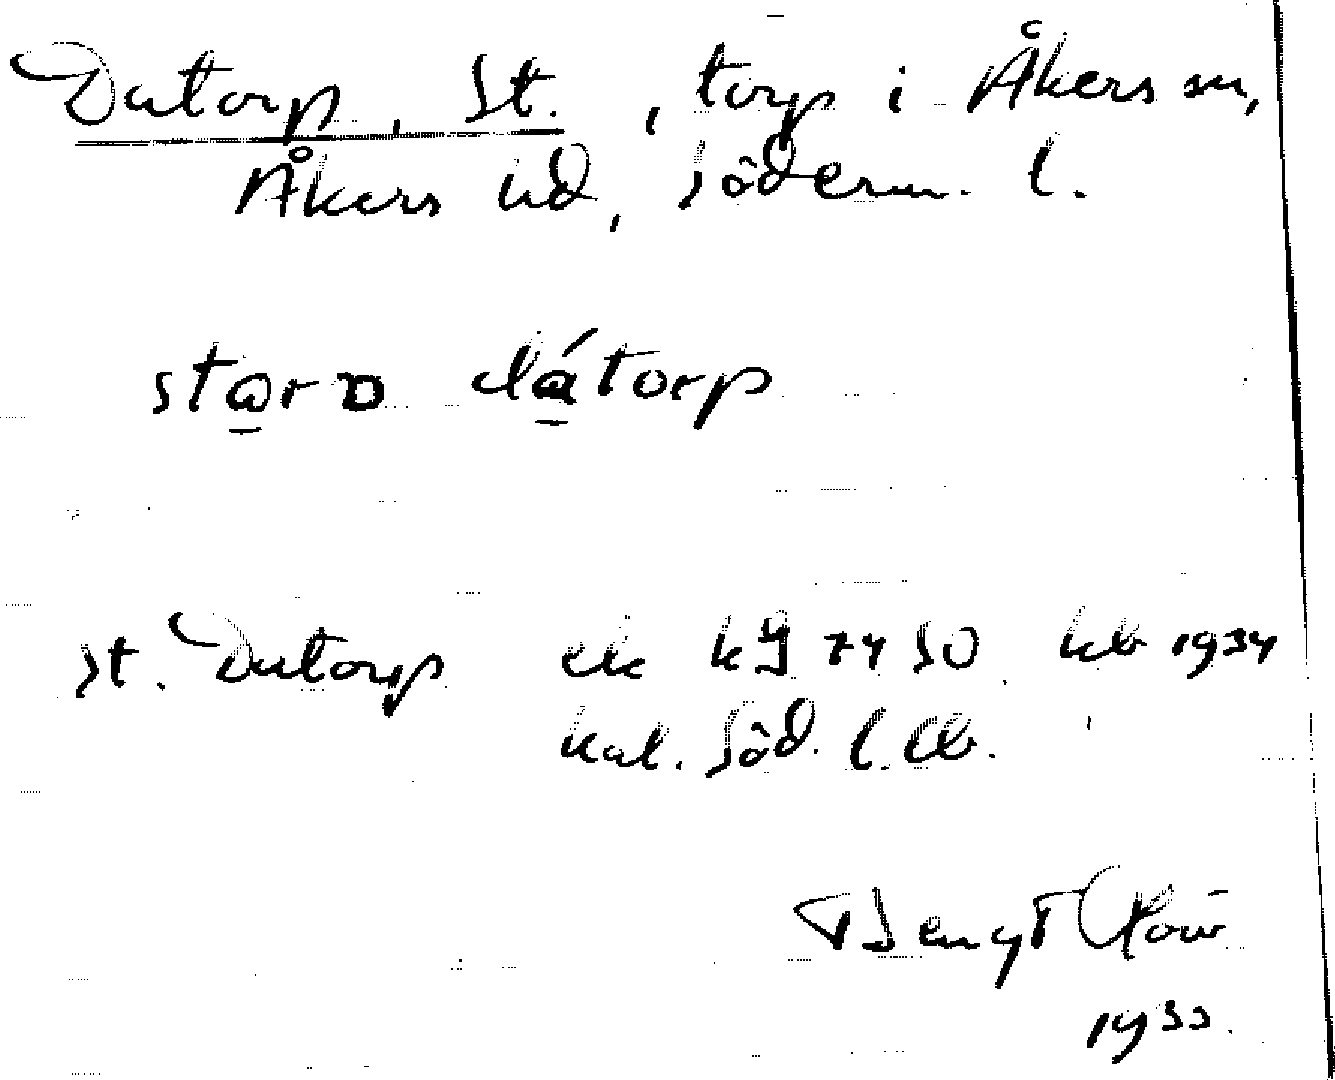 Datorp, St., torp i Åkers sn,
Åkers hd, Söderm. l.
dátorp
St. Datorp ek kg 7450 kb 1934
kal. Söd. l. lb.
Bengt
1935.